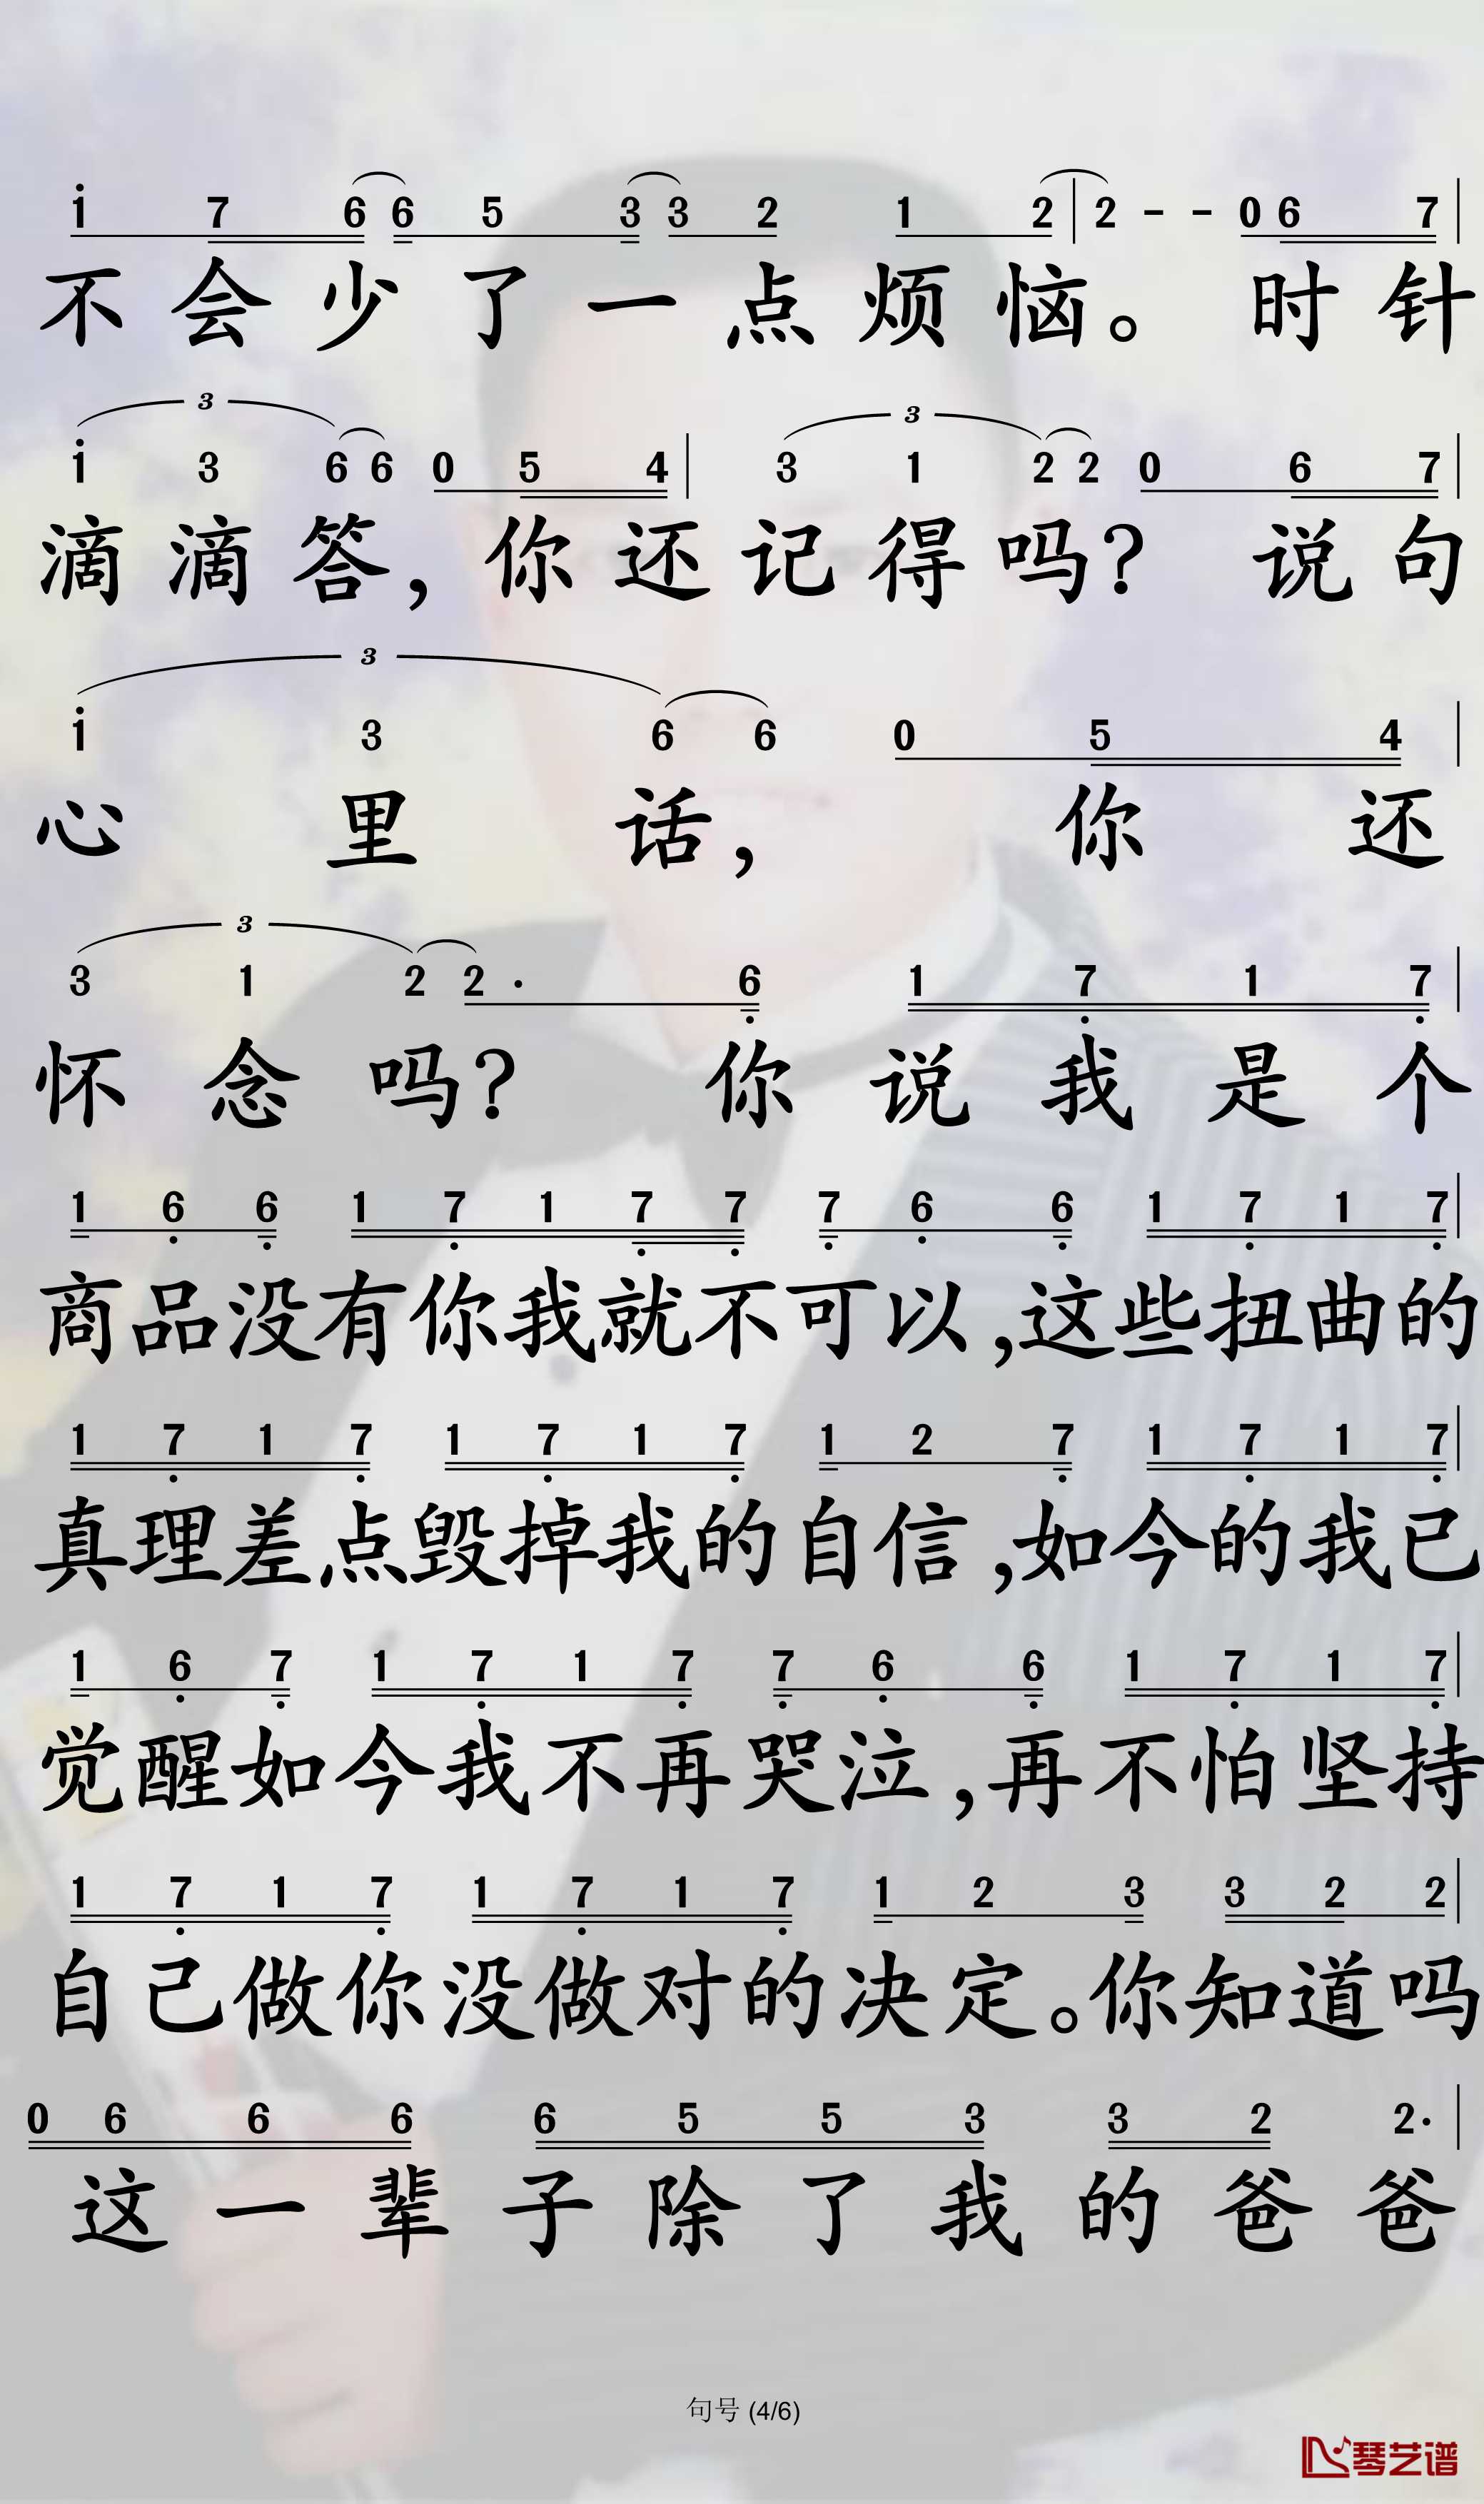 1 7 6 6 5 3 3 2 1 2 | 2 - - 0 6 7 |
不会少了一点烦恼。 时针
3 3
1 3 6 6 0 5 4 | 3 1 2 2 0 6 7 |
滴滴答，你还记得吗? 说句
3
1 3 6 6 0 5 4 |
心里话， 你还
3
3 1 2 2 · 6 1 7 1 7 |
怀念吗? 你说我是个
1 6 6 1 7 1 7 7 7 6 6 1 7 1 7 |
商品没有你我就不可以，这些扭曲的
1 7 1 7 1 7 1 7 1 2 7 1 7 1 7 |
真理差点毁掉我的自信，如今的我已
1 6 7 1 7 1 7 7 6 6 1 7 1 7 |
觉醒如今我不再哭泣，再不怕坚持
1 7 1 7 1 7 1 7 1 2 3 3 2 2 |
自己做你没做对的决定。你知道吗
0 6 6 6 6 5 5 3 3 2 2 · |
这一辈子除了我的爸爸
句号 (4/6)
琴艺谱